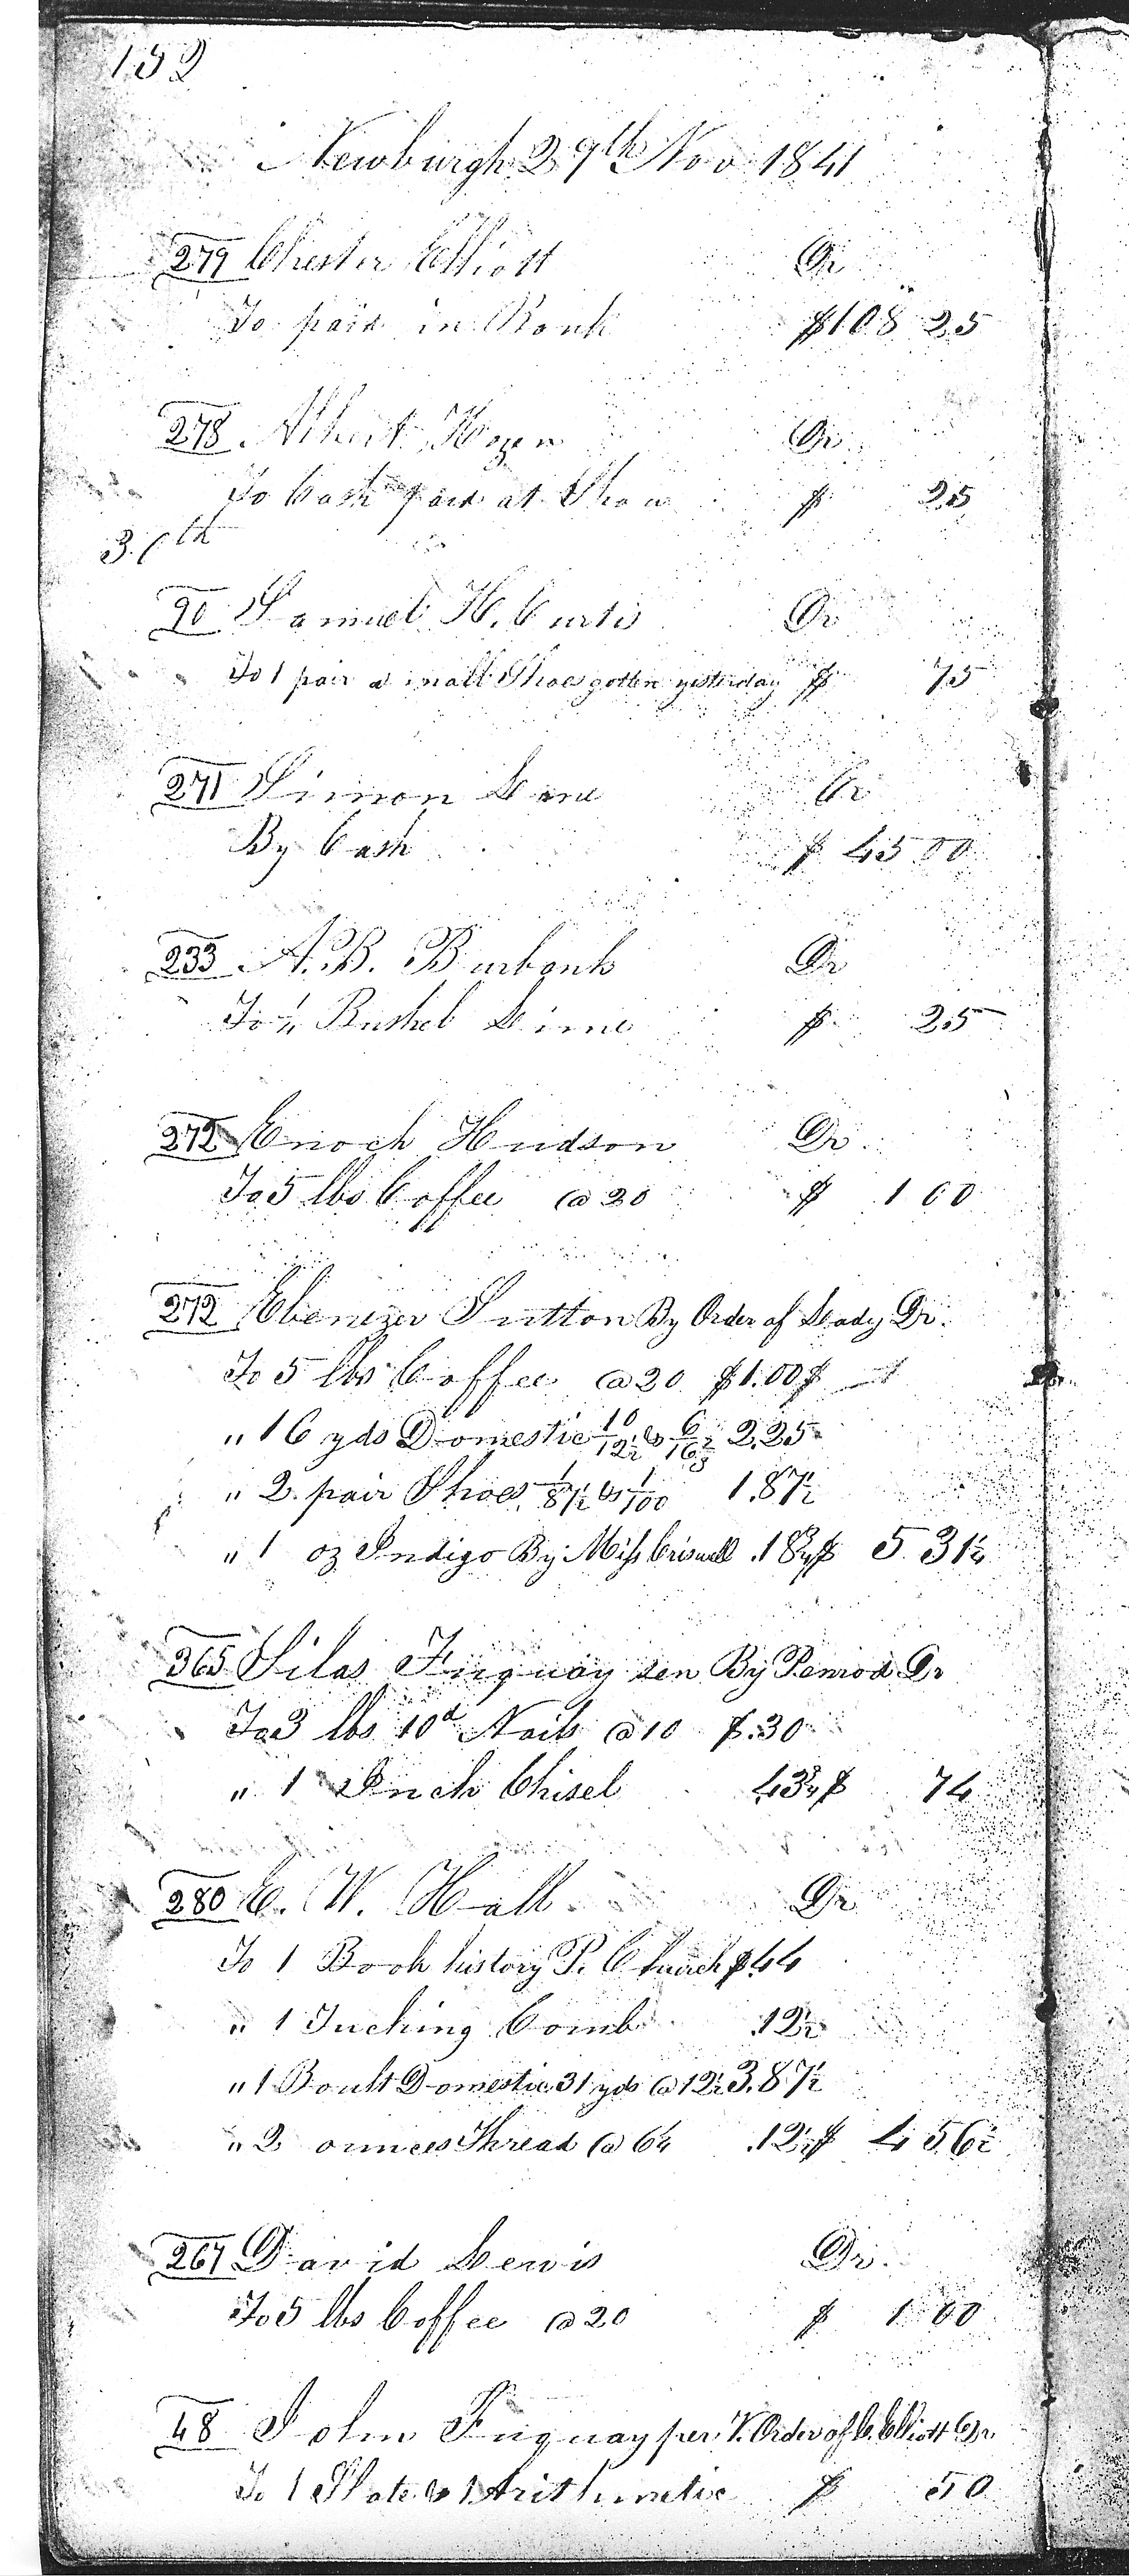 152
Newburgh 29th Nov 1841
279 Chester Elliott Dr
To paid in Bank $108 25
278 Albert Hazen Dr
To Cash paid at Show $ 25
30th
90 Samuel H. Curtis Dr
To 1 pair small Shoes gotten yesterday $ 75
271 Simon Lane Cr
By Cash $ 45 00
233 A. B. Burbank Dr
To 1/4 Bushel Lime $ 25
272 Enoch Hudson Dr
To 5 lbs Coffee @ 20 $ 1 00
272 Ebenezer Sutton By Order of Lady Dr.
To 5 lbs Coffee @ 20 $1.00 $
" 16 yds Domestic 10/12½ & 6/16⅔ 2.25
" 2 pair Shoes 1/87½ & 1/100 1.87½
" 1 oz Indigo By Miss Criswell .18¾ $ 5 31¼
365 Silas Fuquay sen By Penrod Dr
To 3 lbs 10d Nails @ 10 $.30
" 1 Inch Chisel .43¾ $ 74
280 E. W. Hall Dr
To 1 Book history P. Church $.44
" 1 Tucking Comb .12½
" 1 Boult Domestic 31 yds @ 12½ 3.87½
" 2 ounces Thread @ 6¼ .12½ $ 4 56½
267 David Lewis Dr.
To 5 lbs Coffee @ 20 $ 1 00
48 John Fuquay per V. Order of C. Elliott Dr.
To 1 Slate & 1 Arithmetic $ 50